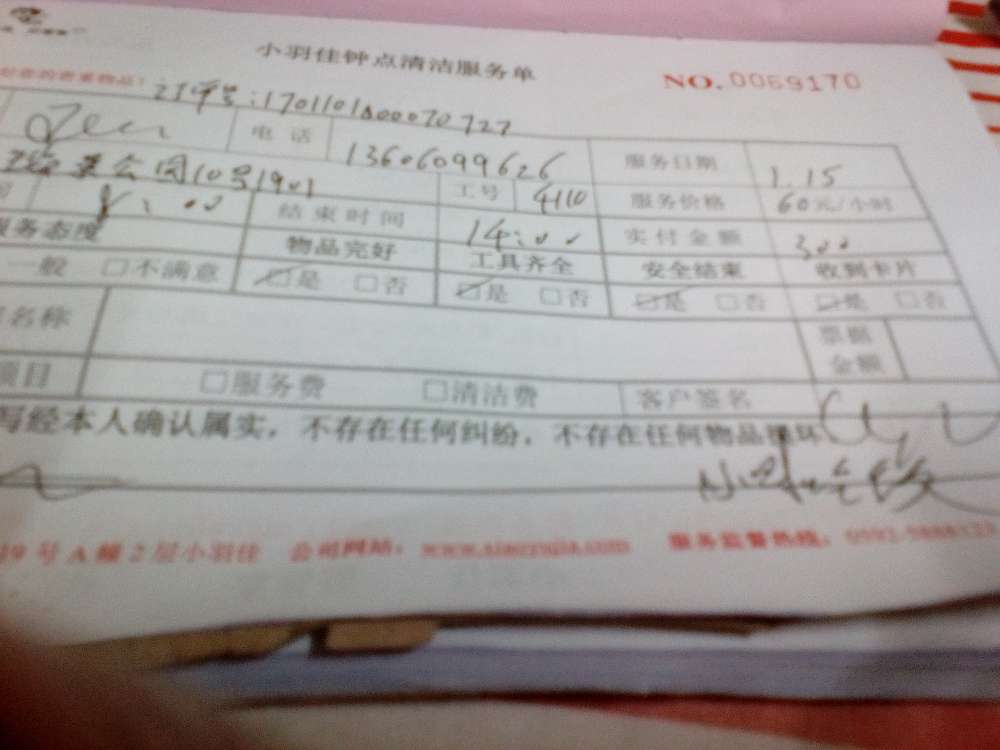 小羽佳钟点清洁服务单
NO.0069170
贵重物品！ 订单号:1701101A00070727
电话 13606099626 服务日期 1.15
公园10号1901 工号 4110 服务价格 60元/小时
结束时间 14:00 实付金额 300
服务态度 物品完好 工具齐全 安全结束 收到卡片
一般 □不满意 ☑是 □否 ☑是 □否 ☑是 □否 ☑是 □否
名称 票据金额
项目 □服务费 □清洁费 客户签名
写经本人确认属实，不存在任何纠纷，不存在任何物品损坏
19号A幢2层小羽佳 公司网站：www.xiaoyujia.com 服务监督热线：